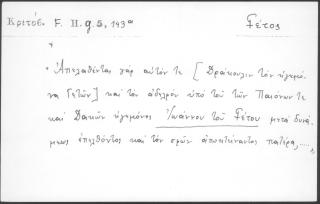 Κριτόβ. F. II. g. 5, 143ᵅ Γέτος
*
Ἀπελαθέντα γὰρ αὐτόν τε [Δράκουλιν τὸν ἡγεμό-
να Γετῶν] καὶ τὸν ἀδελφὸν ὑπὸ τοῦ τῶν Παιόνων τε
καὶ Δακῶν ἡγεμόνος Ἰωάννου τοῦ Γέτου μετὰ δυνά-
μεως ἐπελθόντος καὶ τὸν σφῶν ἀποκτείναντος πατέρα,.....